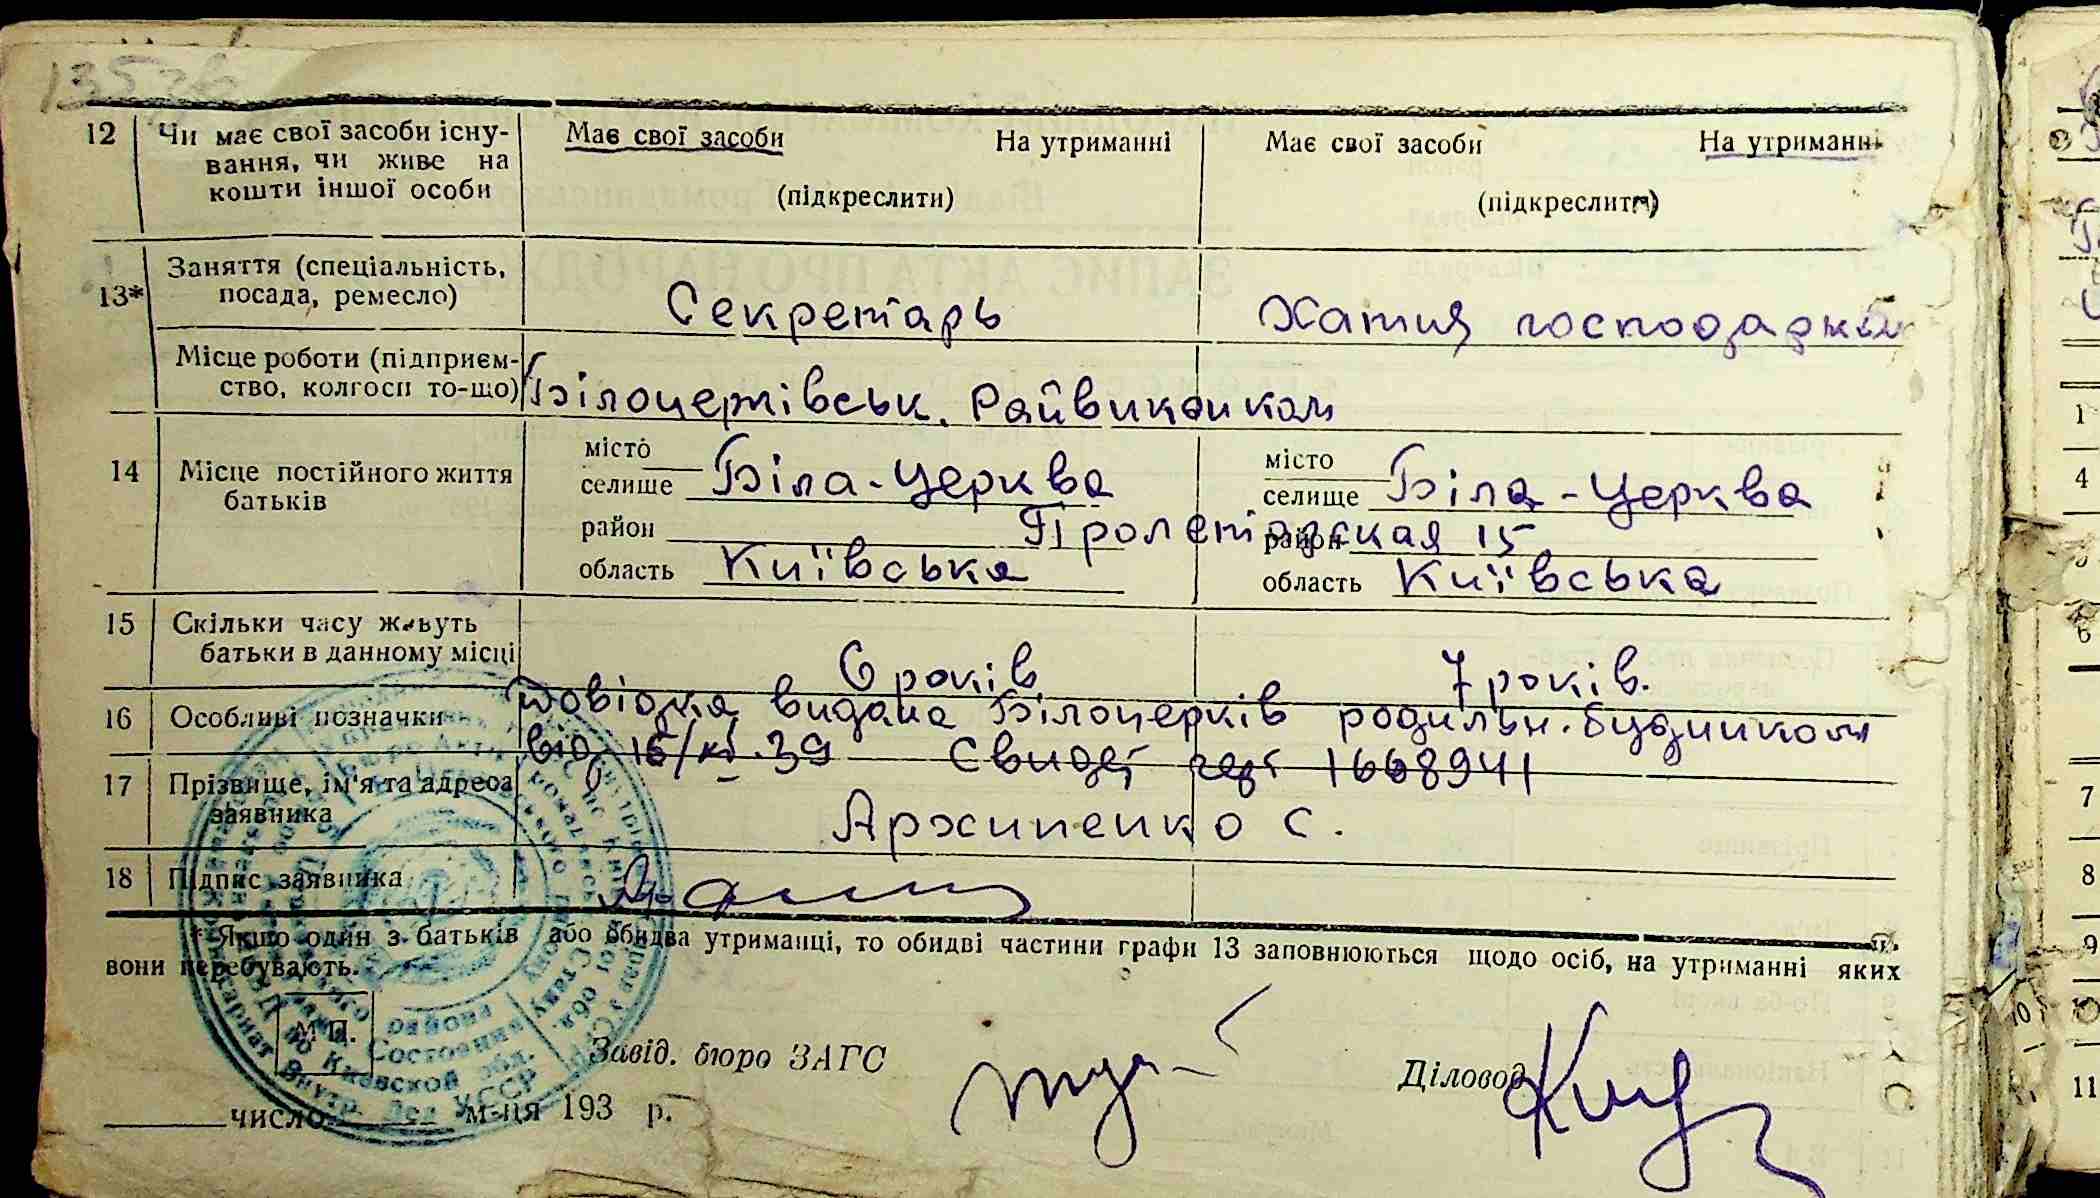 135 зв
12 Чи має свої засоби існу- Має свої засоби На утриманні Має свої засоби На утриманні
вання, чи живе на
кошти іншої особи (підкреслити) (підкреслити)
13* Заняття (спеціальність,
посада, ремесло) Секретарь Хатня господарка
Місце роботи (підприєм-
ство, колгосп то-що) Білоцерківськ. Райвиконком
14 Місце постійного життя
батьків
місто місто
селище Біла-Церква селище Біла-Церква
район Пролетарская 15 район
область Київська область Київська
15 Скільки часу живуть
батьки в данному місці 6 років 7 років.
16 Особливі позначки Довідка видана Білоцерків родильн. будинком
від 16/XI.39 Свидет 1668941
17 Прізвище, ім'я та адреса
заявника Архипенко С.
18 Підпис заявника
* Якщо один з батьків або обидва утриманці, то обидві частини графи 13 заповнюються щодо осіб, на утриманні яких
вони перебувають.
М.П.
Завід. бюро ЗАГС Діловод
число м-ця 193 р.